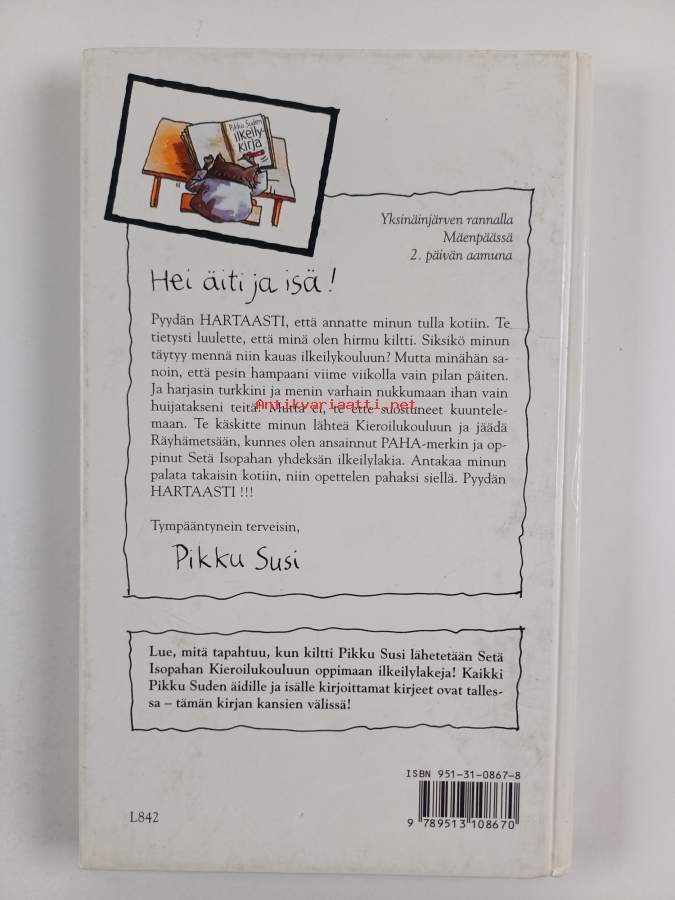 Pikku Suden
ilkeily-
kirja
Yksinäinjärven rannalla
Mäenpäässä
2. päivän aamuna
Hei äiti ja isä!
Pyydän HARTAASTI, että annatte minun tulla kotiin. Te
tietysti luulette, että minä olen hirmu kiltti. Siksikö minun
täytyy mennä niin kauas ilkeilykouluun? Mutta minähän sa-
noin, että pesin hampaani viime viikolla vain pilan päiten.
Ja harjasin turkkini ja menin varhain nukkumaan ihan vain
huijatakseni teitä! Mutta ei, te ette suostuneet kuuntele-
Antikvariaatti.net
maan. Te käskitte minun lähteä Kieroilukouluun ja jäädä
Räyhämetsään, kunnes olen ansainnut PAHA-merkin ja op-
pinut Setä Isopahan yhdeksän ilkeilylakia. Antakaa minun
palata takaisin kotiin, niin opettelen pahaksi siellä. Pyydän
HARTAASTI !!!
Tympääntynein terveisin,
Pikku Susi
Lue, mitä tapahtuu, kun kiltti Pikku Susi lähetetään Setä
Isopahan Kieroilukouluun oppimaan ilkeilylakeja! Kaikki
Pikku Suden äidille ja isälle kirjoittamat kirjeet ovat talles-
sa – tämän kirjan kansien välissä!
ISBN 951-31-0867-8
L842
9 789513 108670